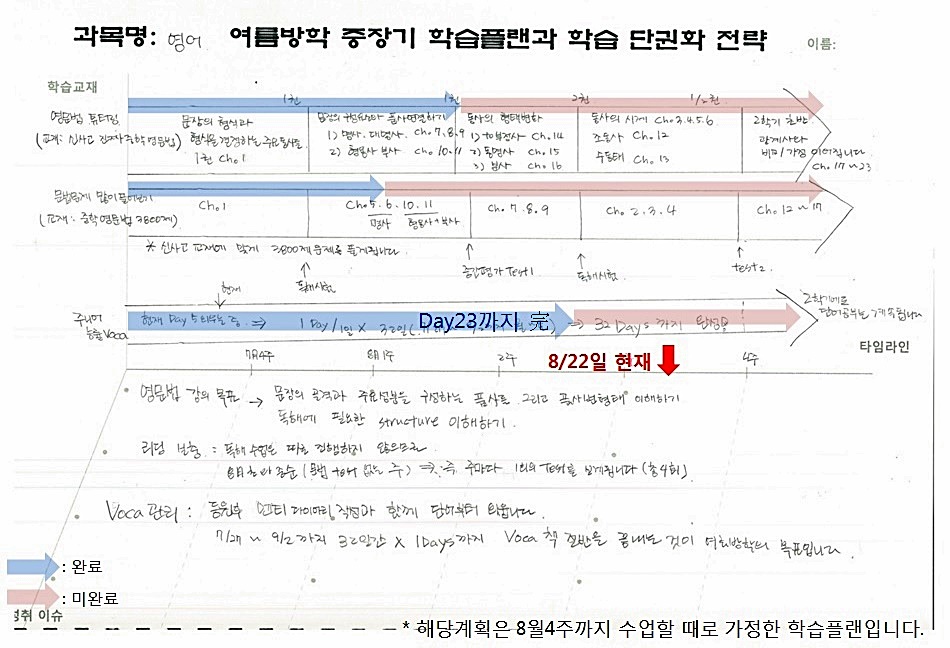 과목명: 영어 여름방학 중장기 학습플랜과 학습 단권화 전략
이름:
학습교재
1권 1권 2권 1/2권
영문법 튜터링
문장의 형식과
형식을 결정하는 주요품사들
1권 Ch 1
1) 명사. 대명사. Ch. 7, 8, 9
2) 형용사 부사 Ch. 10. 11
동사의 형태변화
1) to부정사 Ch. 14
2) 동명사 Ch. 15
3) 분사 Ch. 16
동사의 시제 Ch. 3.4.5.6
조동사 Ch. 12
수동태 Ch. 13
2학기 초반
관계사와
비교/가정 이어집니다.
Ch. 17 ~ 23
문법문제 많이 풀어보기
(교재: 중학영문법 3800제)
Ch. 1
Ch. 5. 6. 10. 11
명사 형용사*부사
Ch. 7. 8. 9
Ch. 2. 3. 4
Ch. 12 ~ 17
* 신사고 교재에 맞게 3800제 문제를 풀게됩니다.
현재
독해시험
중간평가 Test 1
독해시험.
test 2.
주니어
능률 Voca
현재 Day 5 외우는 중 ⇒ 1 Day / 1일 × 32일
Day23까지 完
⇒ 32 Days 까지 완성!
2학기에도
단어공부는 계속됩니다
타임라인
7月4주 8月1주 2주 4주
8/22일 현재
영문법 강의 목표 → 문장의 골격과 주요성분을 구성하는 품사들 그리고 품사별형태 이해하기
독해에 필요한 structure 이해하기.
리딩 보충 : 독해수업을 따로 진행하지 않으므로
⇒ 즉 주마다 1회의 Test를 보게됩니다 (총 4회)
Voca 관리 : 등원부 멘티 다이어리 작성과 함께 단어부터 외웁니다.
7/27 ~ 9/2 까지 32일간 × 1 Days 까지 Voca 책 절반을 끝내는 것이 여름방학의 목표입니다.
: 완료
: 미완료
성취 이슈
* 해당계획은 8월4주까지 수업할 때로 가정한 학습플랜입니다.